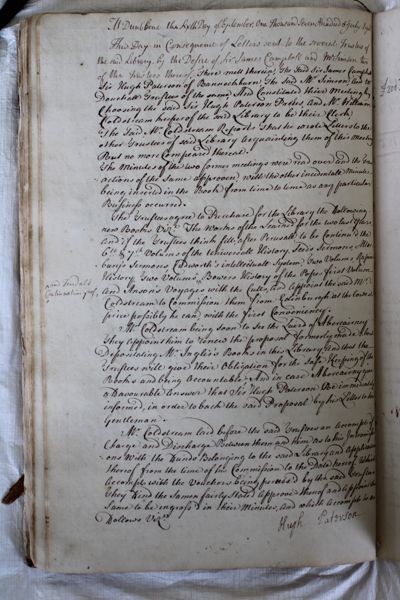 At Dunblane the sixth Day of September, One thousand Seven Hundred & fourty Eight
This Day in Consequence of Letters sent to the several Trustees of
the said Library by the Desire of Sir James Campbell and Mr Simson two
of the Trustees thereof. There mett therein, The said Sir James Campbell
Sir Hugh Paterson of Bannockburn The said Mr Simson and Mr
Trustees of the same, And Constituted their Meeting by
Choosing the said Sir Hugh Paterson Preses, And Mr William
Coldstream keeper of the said Library to be their Clerk.
The said Mr Coldstream Reports that he wrote Letters to the
other Trustees of said Library Acquainting them of this Meeting
But no more Compeared thereat.
The Minutes of the two former meetings were read over and the Trans
actions of the same approven with the other incidentale Minutes
being inserted in the Book from time to time as any particular
Business occurred.
The Trustees agree to Purchase for the Library the Following
new Books Vizt. The Works of the Learned for the two last Years
And if the Trustees think fitt, after Perusall to be Continued the
6th & 7th Volums of the Universall History, Seeds Sermons, Atter
burys Sermons, Cudworth's intellectuale System two Volums, Rapins
History two Volums, Bowers History of the Popes first Volum
and Anson's Voyages with the Cutts, and appoint the said Mr
Coldstream to Commission them from Edinburgh at the lowest
price possibly he can, with the first Conveniency.
Mr Coldstream being soon to see the Laird of Abercairney
They Appoint him to renew the proposal formerly made about
Depositating Mr Inglis's Books in the Library, and that the
Trustees will give their Obligation for the safe keeping of the
Books and being Accountable, And in case Abercairney give
a Favourable Answer that Sir Hugh Paterson be immediately
informed, in order to back the said Proposal by his Letter to that
Gentleman.
Mr Coldstream laid before the said Trustees an Accompt of
Charge and Discharge Between them and him as to his Intromissi
ons With the Funds Belonging to the said Library and Application
thereof from the time of his Commission to the Date hereof, Which
Accompt with the Vouchers being perused by the said Trustees
They Find the Same fairly Stated Approve thereof and Appoint the
Same to be engrost in their Minutes, And which Accompt is as
Follows Vizt.
Hugh Paterson